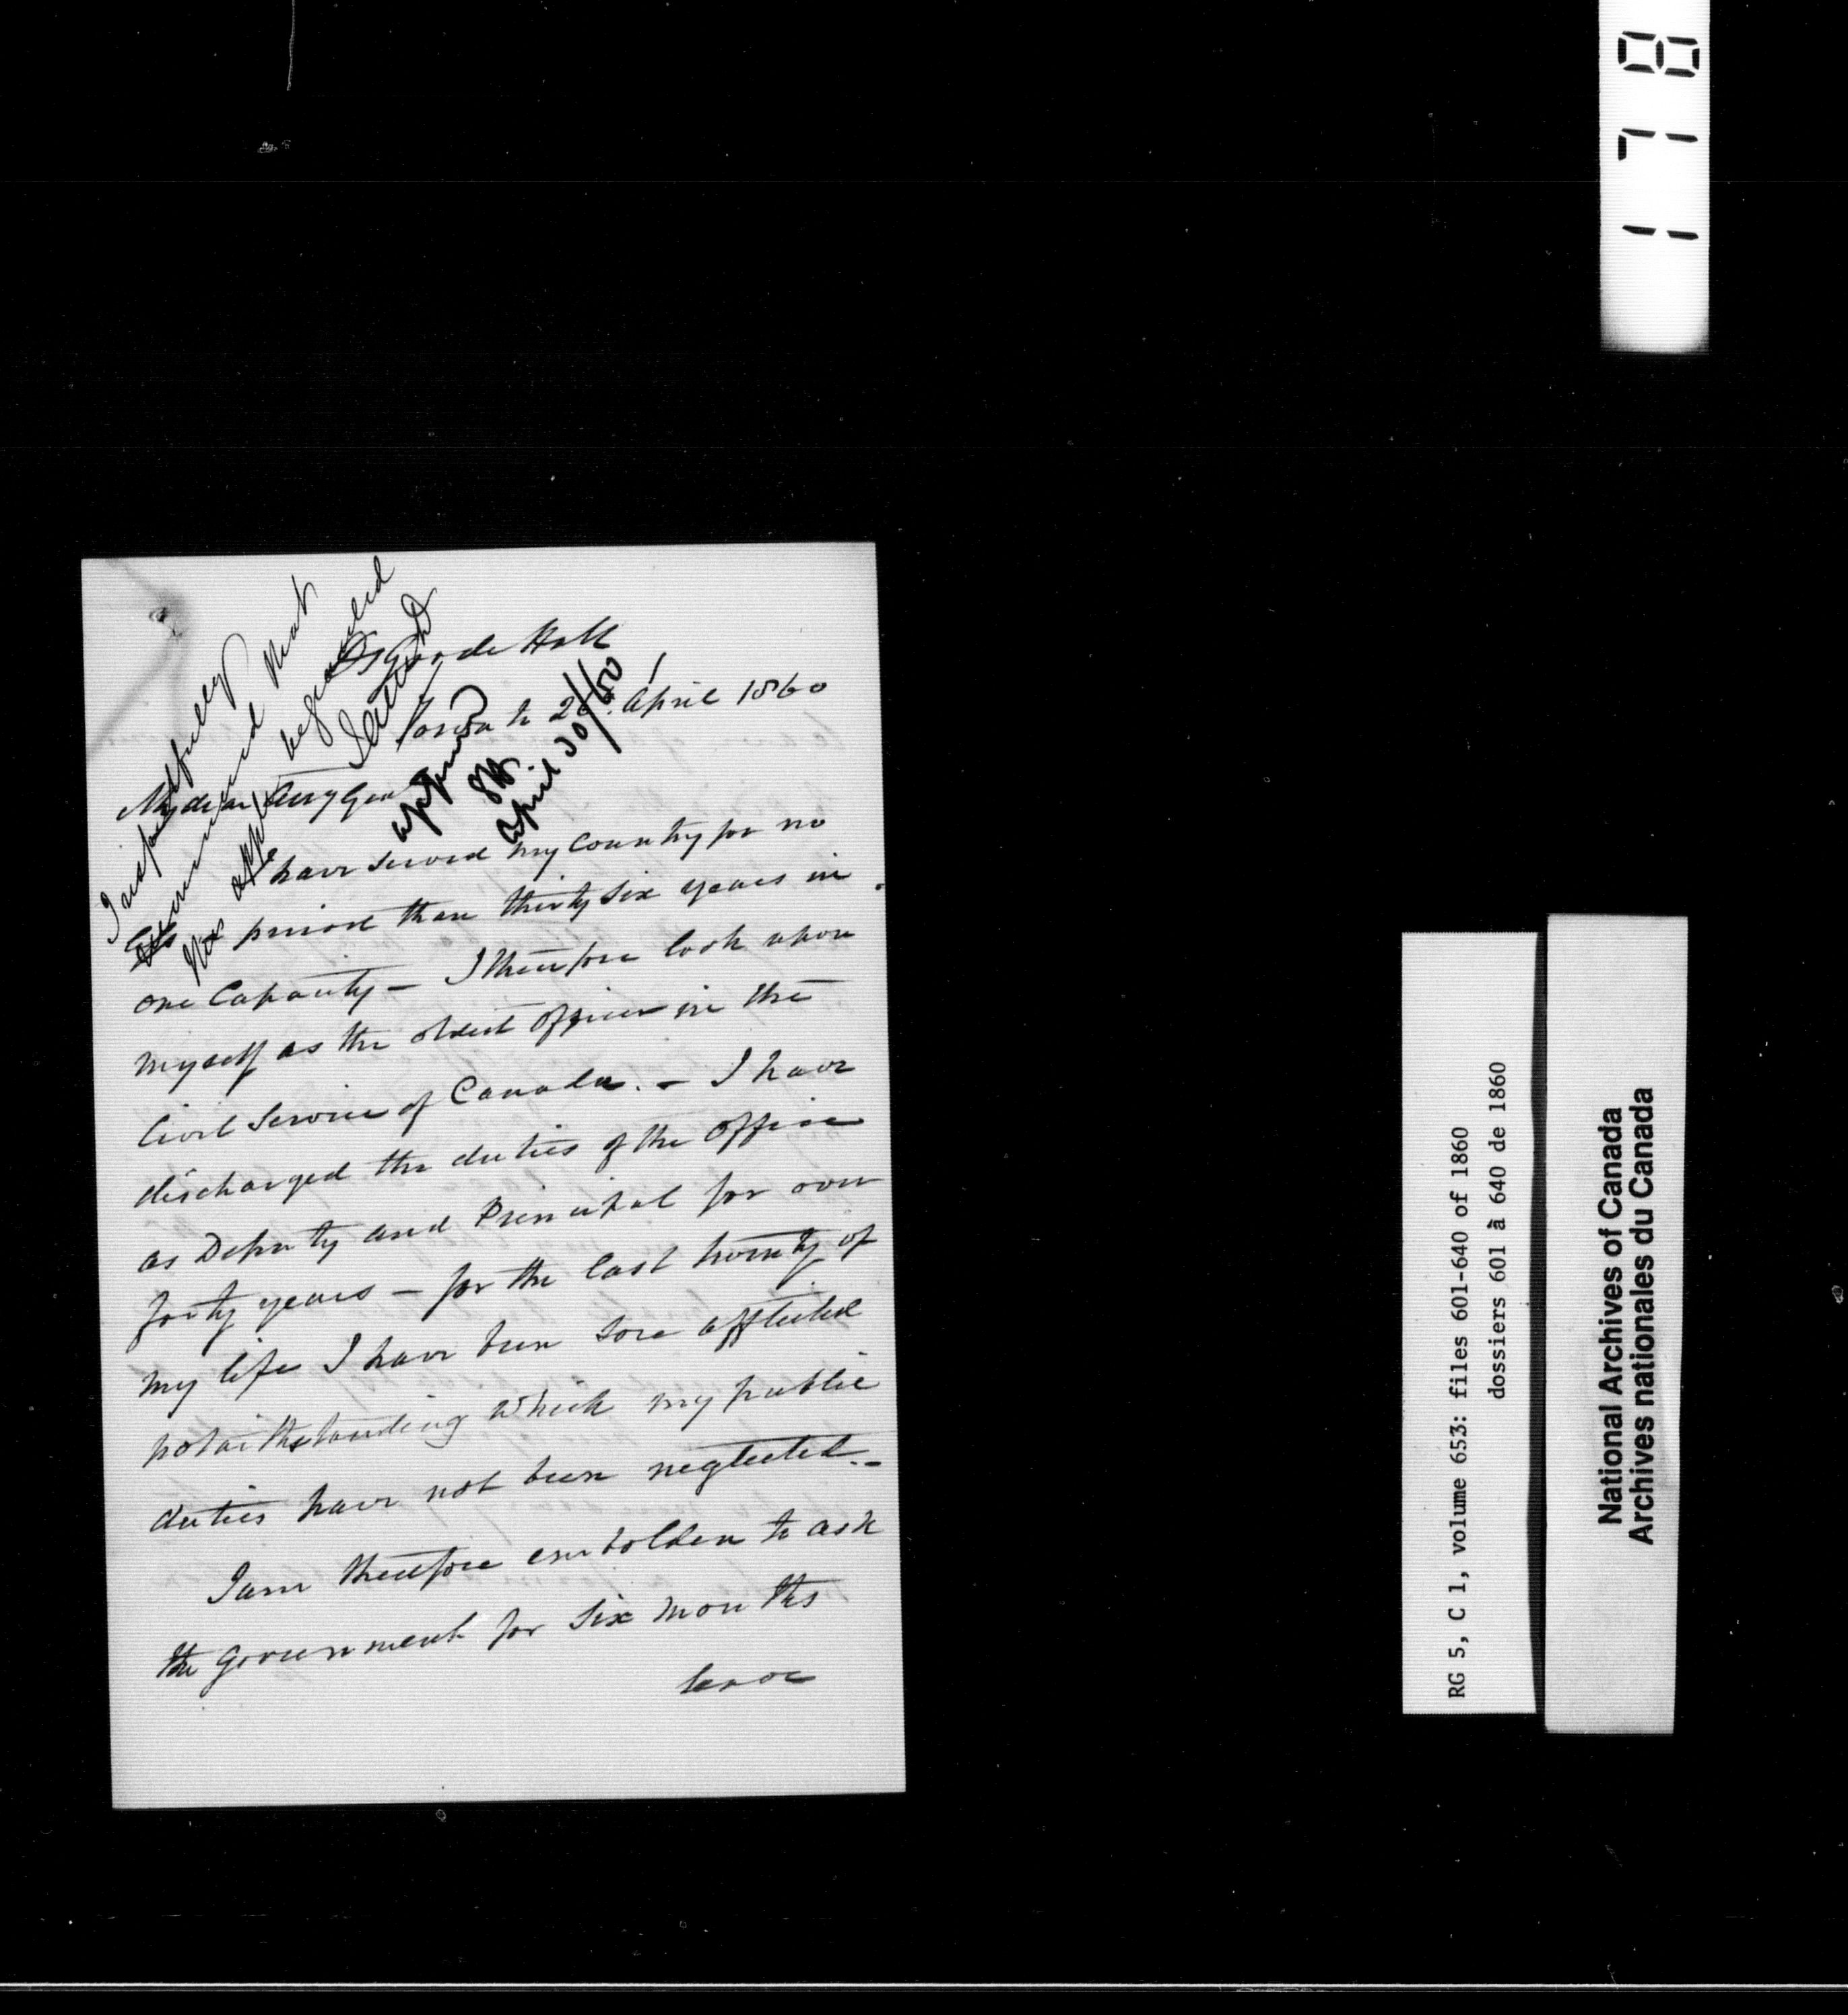 178
I respectfully
recommend that
this appln be granted
approved
EH.
April 30/60
Osgoode Hall
Toronto 26. April 1860
My dear Atty Genl
I have served my Country for no
less period than thirty six years in
one Capacity – I therefore look upon
myself as the oldest officer in the
Civil Service of Canada. – I have
discharged the duties of the office
as Deputy and Principal for over
forty years – for the last twenty of
my life I have been sore afflicted
notwithstanding which my public
duties have not been neglected. –
I am therefore embolden to ask
the Government for six months
leave
RG 5, C 1, volume 653: files 601-640 of 1860
dossiers 601 à 640 de 1860
National Archives of Canada
Archives nationales du Canada